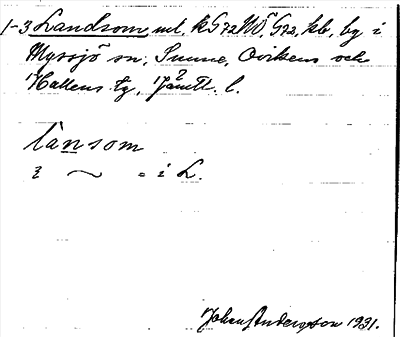 1-3 Landsom ml, kG72NÖ, G72, kb, by i
Myssjö sn, Sunne, Ovikens och
Hallens tg, Jämtl. l.
lansom
i ~ = i L.
Johan Anderson 1931.